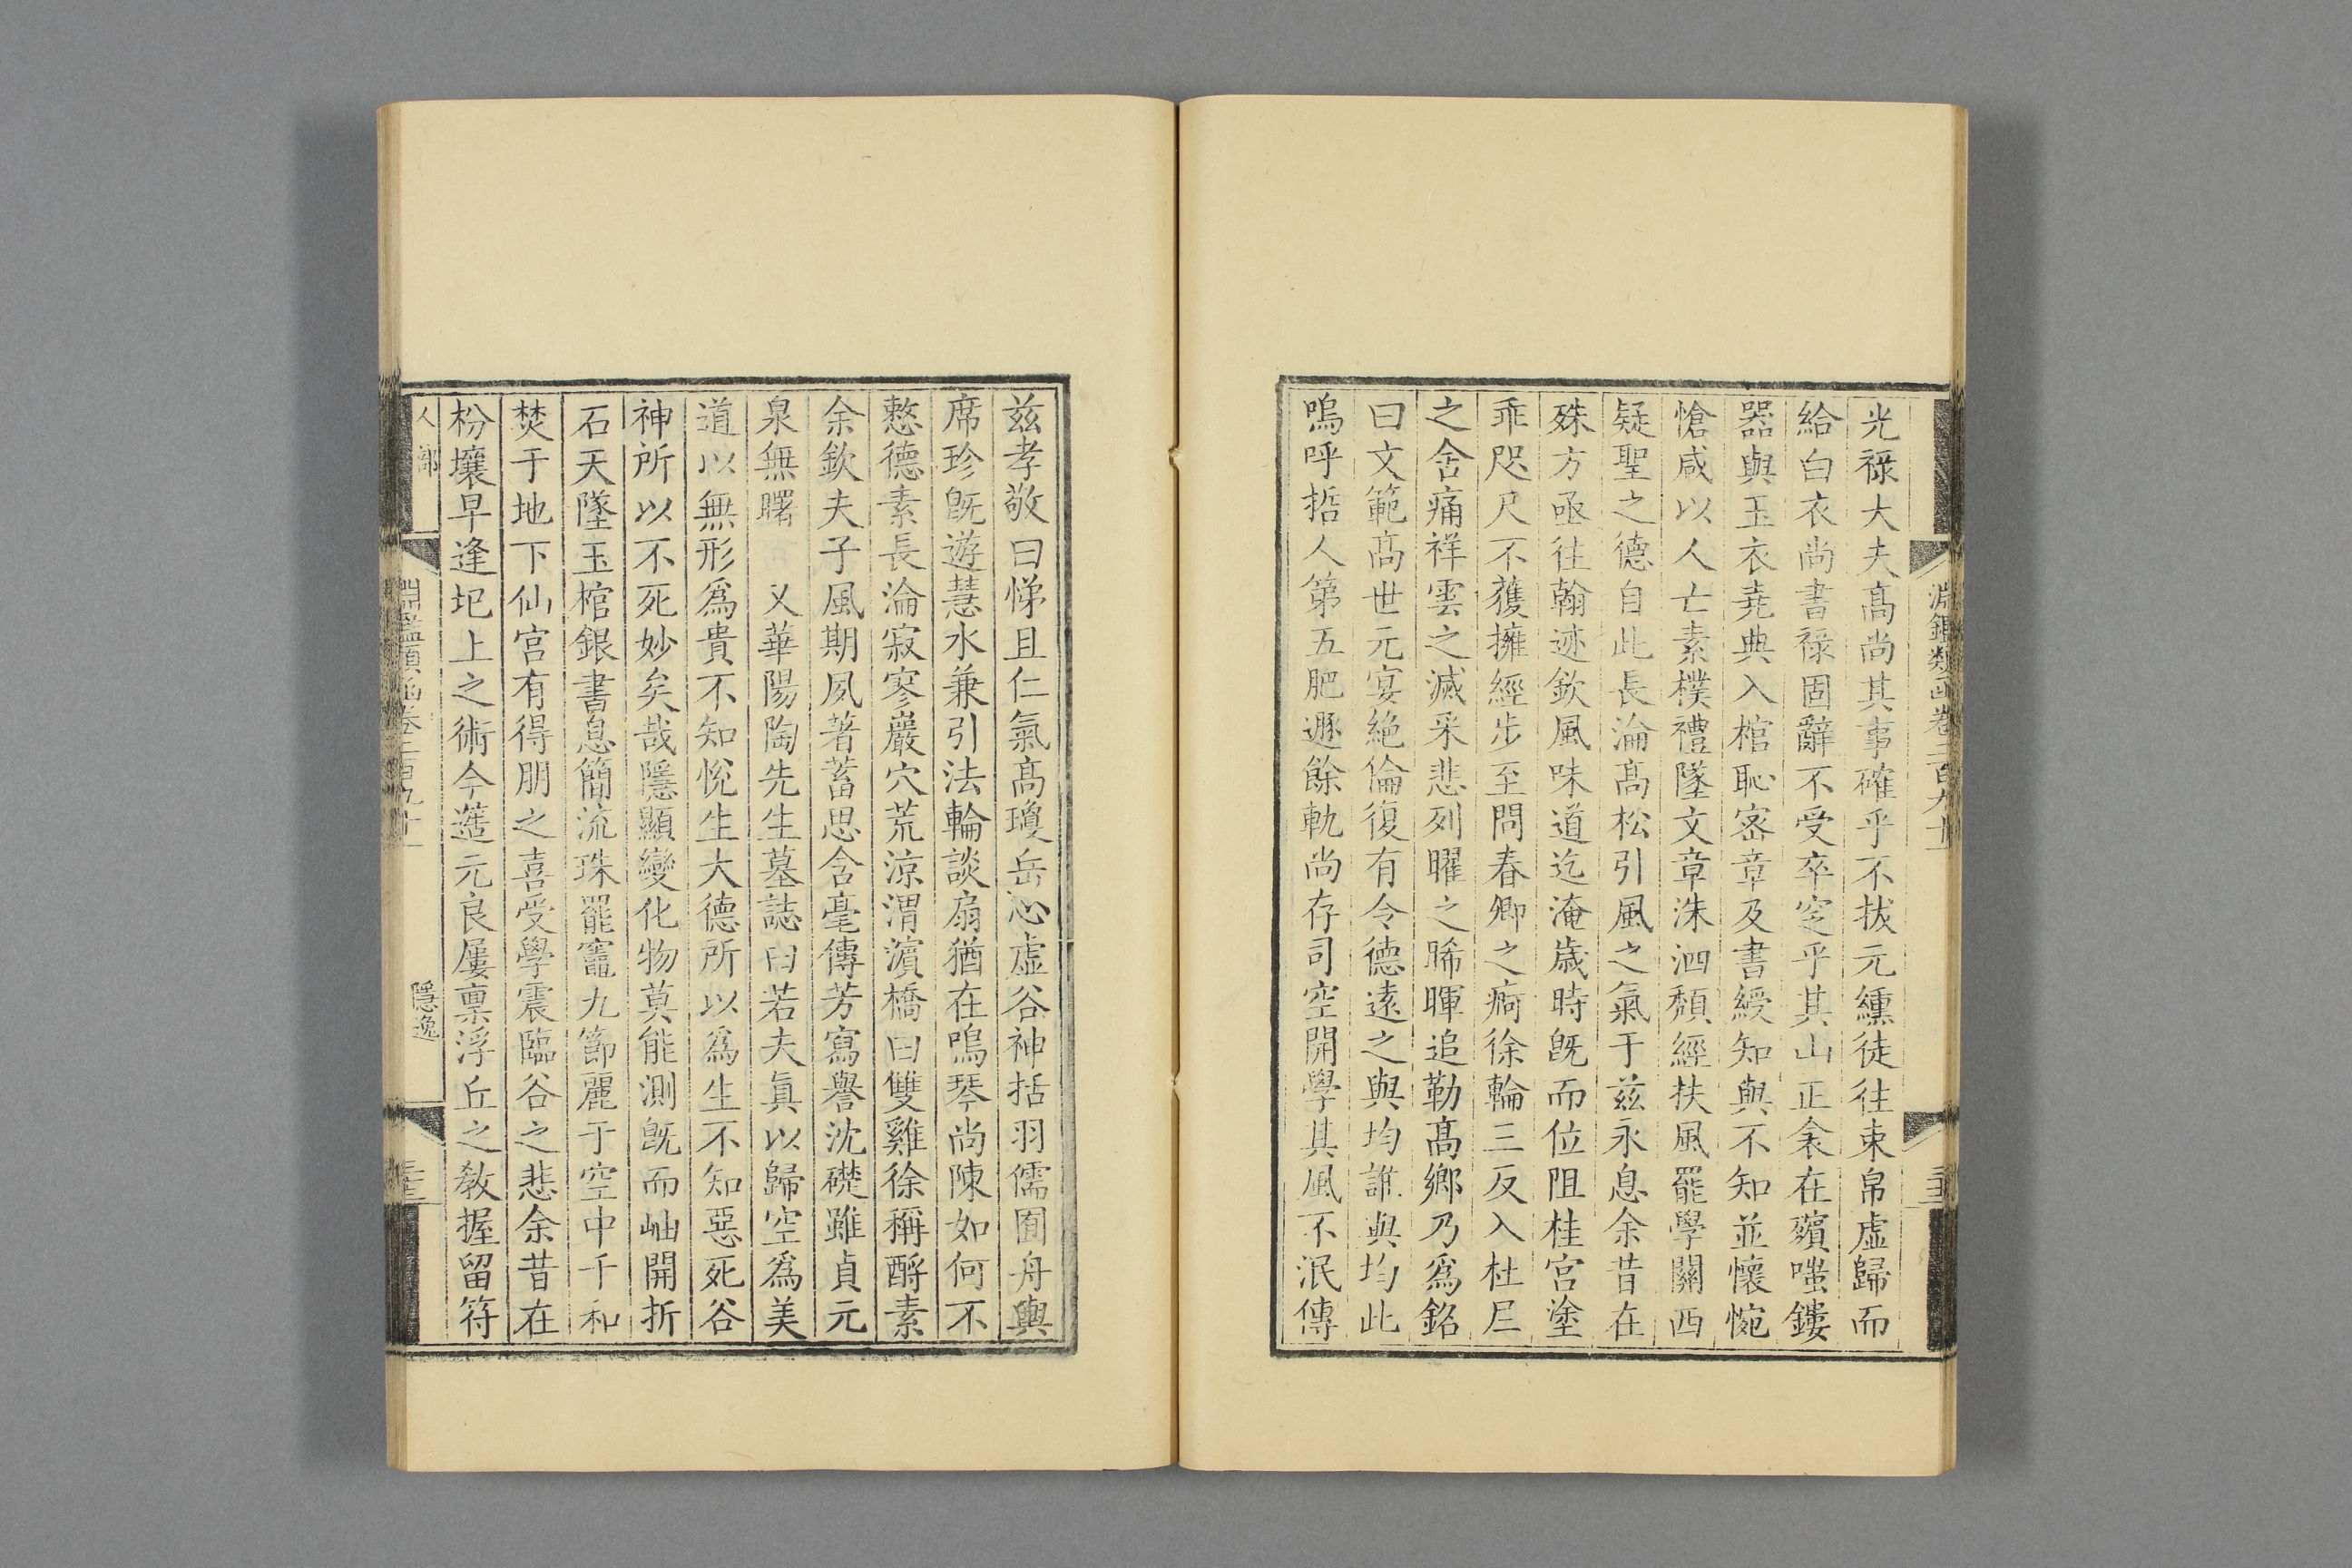 淵鑑類函卷二百九十一
光祿大夫髙尚其事確乎不拔元纁徒往束帛虚歸而
給白衣尚書祿固辭不受卒窆乎其山正衾在殯嗤鏤
器與玉衣堯典入棺恥宻章及書綬知與不知並懷惋
愴咸以人亡素樸禮墜文章洙泗頽經扶風罷學關西
疑聖之德自此長淪髙松引風之氣于兹永息余昔在
殊方亟往翰迹欽風味道迄淹歳時旣而位阻桂宫塗
乖咫尺不獲擁經步至問春卿之痾徐輪三反入杜㠯
之舍痛祥雲之滅采悲列曜之晞暉追勒髙鄉乃爲銘
曰文範髙世元宴絶倫復有令德逺之與均誰與均此
嗚呼哲人第五肥遯餘軌尚存司空開學其風不泯傳
兹孝敬曰悌且仁氣髙瓊岳心虚谷神括羽儒囿舟輿
席珍旣遊慧水兼引法輪談扇猶在鳴琴尚陳如何不
憗德素長淪寂寥巖穴荒涼渭濵橋曰雙雞徐稱酹素
余欽夫子風期夙著蓄思含毫傳芳寫譽沈礎雖貞元
泉無曙 又華陽陶先生墓誌曰若夫眞以歸空爲美
道以無形爲貴不知恱生大德所以爲生不知惡死谷
神所以不死妙矣哉隱顯變化物莫能測旣而岫開折
石天墜玉棺銀書息簡流珠罷竈九節麗于空中千和
焚于地下仙宫有得朋之喜受學震臨谷之悲余昔在
枌壤早逢圯上之術今簉元良屢禀浮丘之敎握留符
人部
淵鑑類函卷二百九十一
隱逸